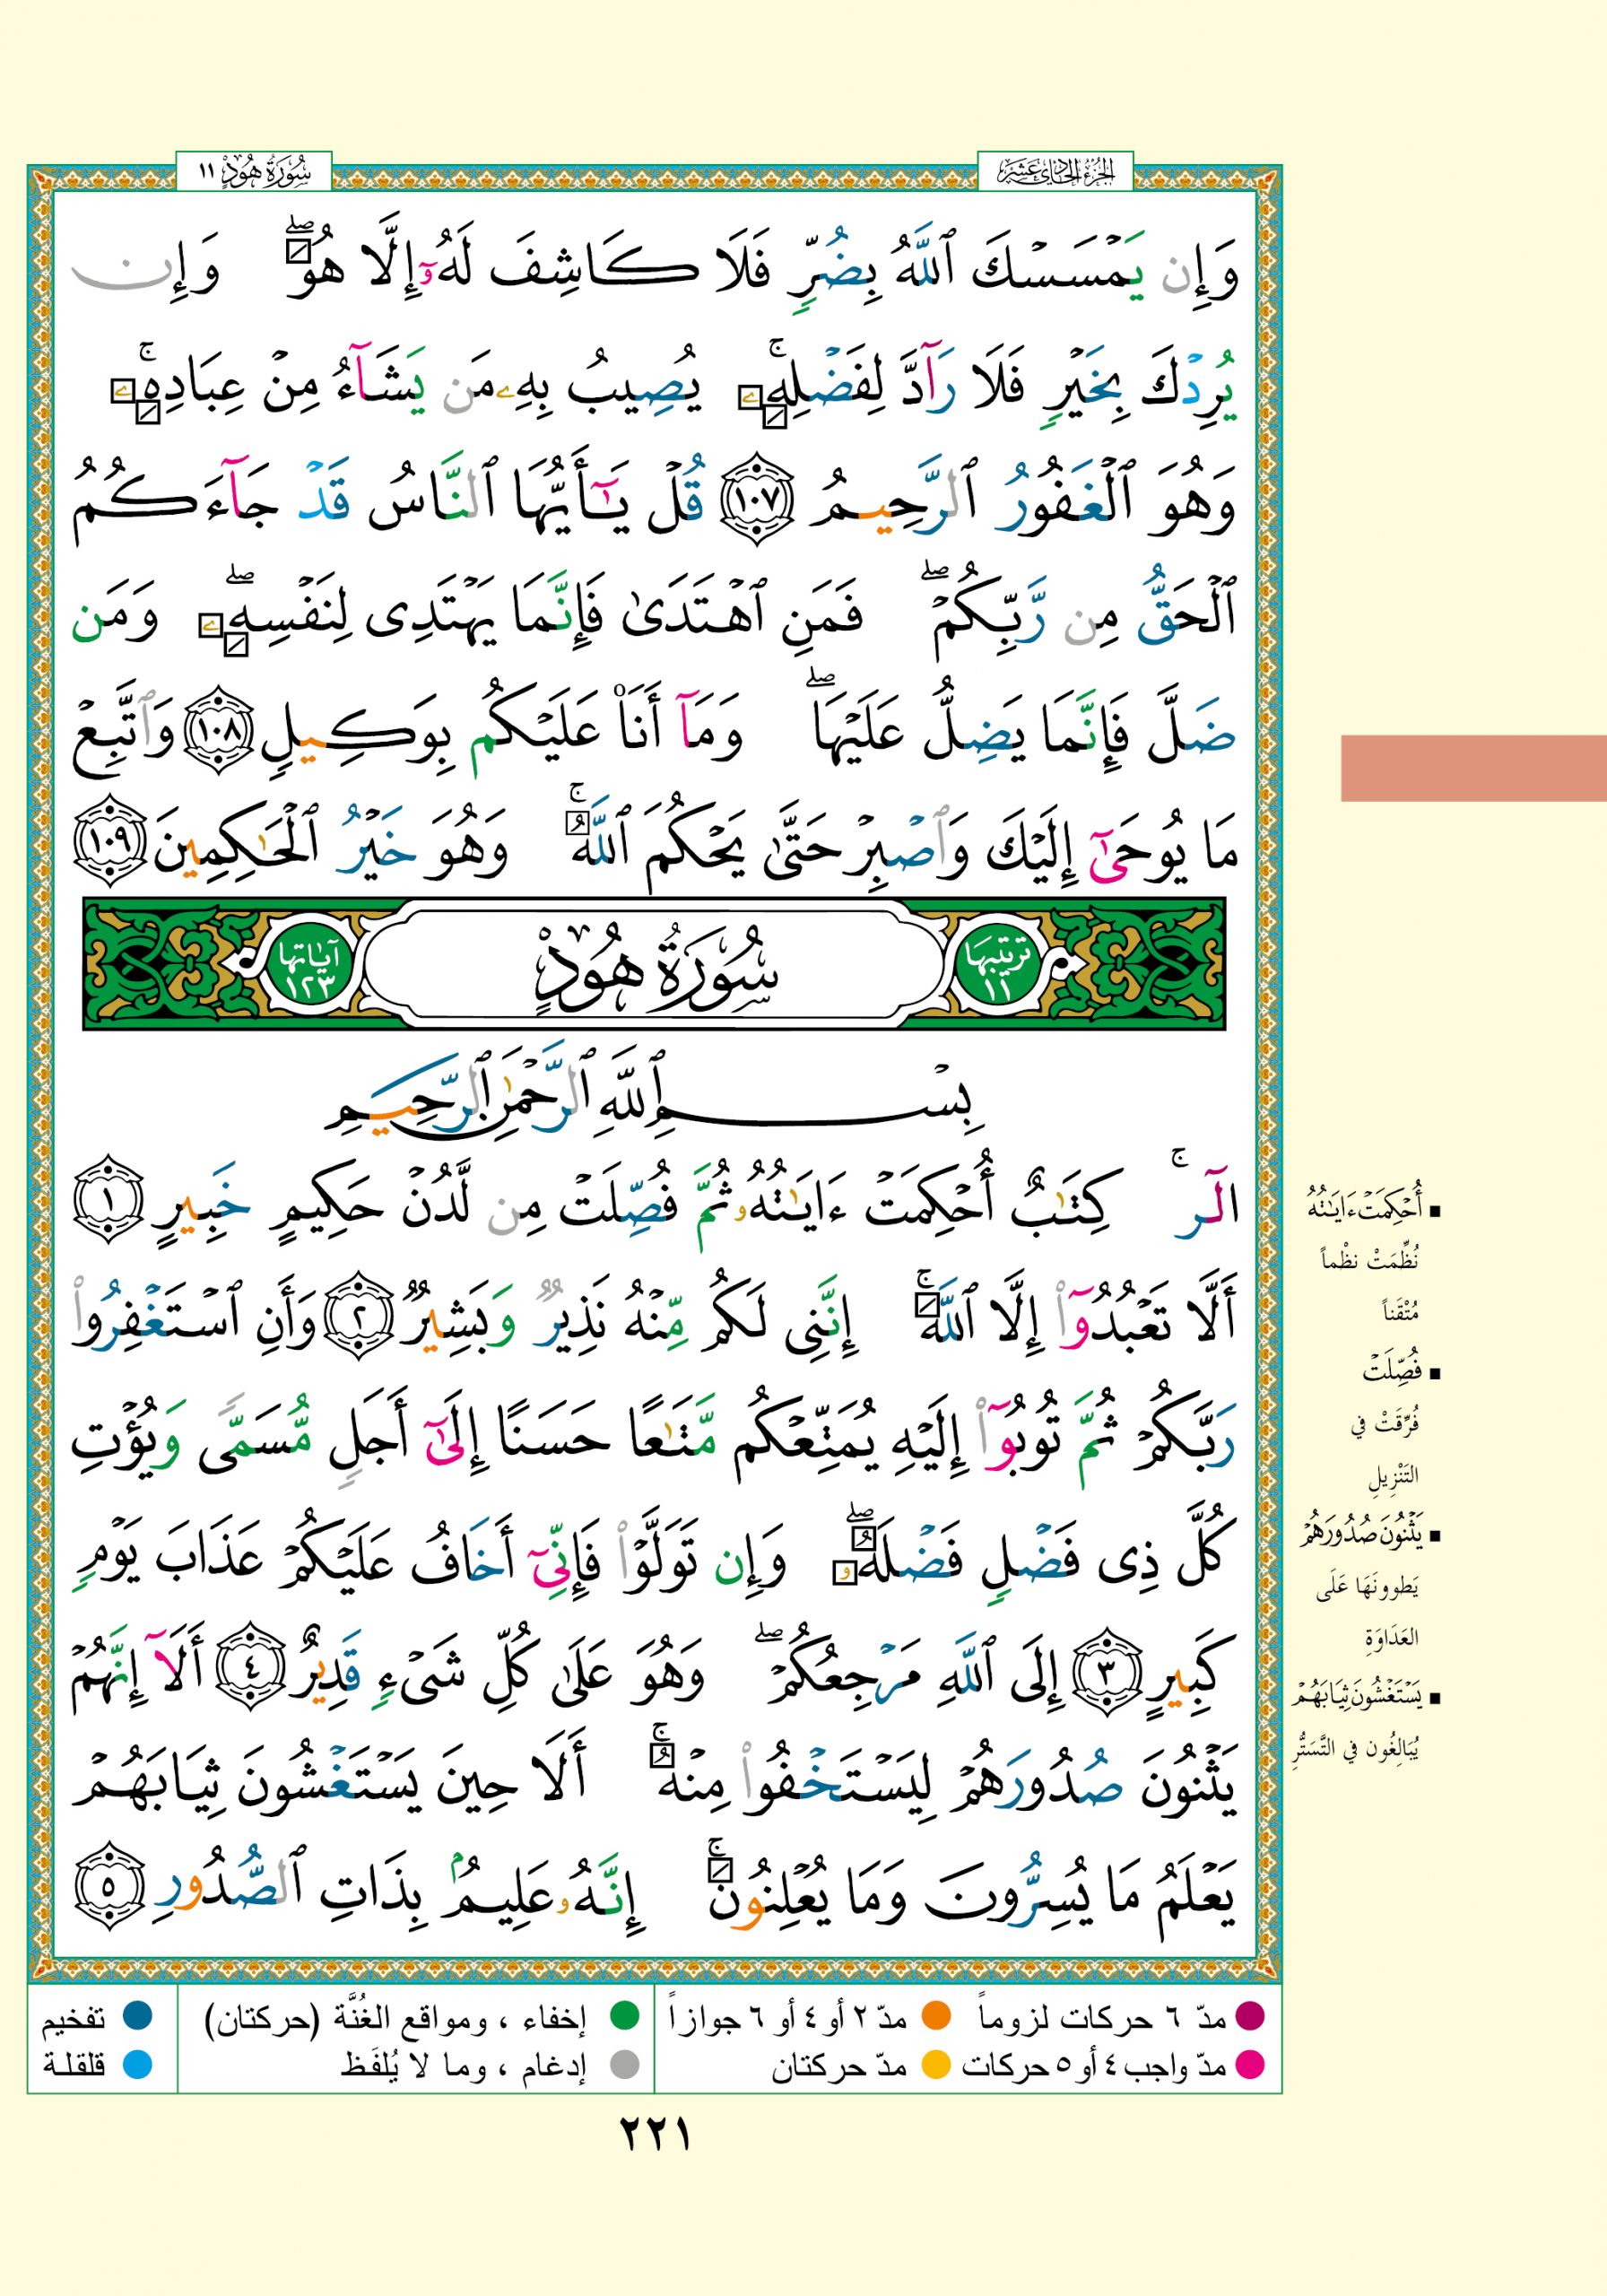 الجزء الحادي عشر
سُورَةُ هُودٍ ١١
وَإِن يَمْسَسْكَ ٱللَّهُ بِضُرٍّ فَلَا كَاشِفَ لَهُۥٓ إِلَّا هُوَ ۖ وَإِن
يُرِدْكَ بِخَيْرٍ فَلَا رَآدَّ لِفَضْلِهِۦ ۚ يُصِيبُ بِهِۦ مَن يَشَآءُ مِنْ عِبَادِهِۦ ۚ
وَهُوَ ٱلْغَفُورُ ٱلرَّحِيمُ ١٠٧ قُلْ يَـٰٓأَيُّهَا ٱلنَّاسُ قَدْ جَآءَكُمُ
ٱلْحَقُّ مِن رَّبِّكُمْ ۖ فَمَنِ ٱهْتَدَىٰ فَإِنَّمَا يَهْتَدِى لِنَفْسِهِۦ ۖ وَمَن
ضَلَّ فَإِنَّمَا يَضِلُّ عَلَيْهَا ۖ وَمَآ أَنَا۠ عَلَيْكُم بِوَكِيلٍ ١٠٨ وَٱتَّبِعْ
مَا يُوحَىٰٓ إِلَيْكَ وَٱصْبِرْ حَتَّىٰ يَحْكُمَ ٱللَّهُ ۚ وَهُوَ خَيْرُ ٱلْحَـٰكِمِينَ ١٠٩
ترتيبها ١١
سُورَةُ هُودٍ
آياتها ١٢٣
بِسْمِ ٱللَّهِ ٱلرَّحْمَـٰنِ ٱلرَّحِيمِ
الٓر ۚ كِتَـٰبٌ أُحْكِمَتْ ءَايَـٰتُهُۥ ثُمَّ فُصِّلَتْ مِن لَّدُنْ حَكِيمٍ خَبِيرٍ ١
أَلَّا تَعْبُدُوٓا۟ إِلَّا ٱللَّهَ ۚ إِنَّنِى لَكُم مِّنْهُ نَذِيرٌ وَبَشِيرٌ ٢ وَأَنِ ٱسْتَغْفِرُوا۟
رَبَّكُمْ ثُمَّ تُوبُوٓا۟ إِلَيْهِ يُمَتِّعْكُم مَّتَـٰعًا حَسَنًا إِلَىٰٓ أَجَلٍ مُّسَمًّى وَيُؤْتِ
كُلَّ ذِى فَضْلٍ فَضْلَهُۥ ۖ وَإِن تَوَلَّوْا۟ فَإِنِّىٓ أَخَافُ عَلَيْكُمْ عَذَابَ يَوْمٍ
كَبِيرٍ ٣ إِلَى ٱللَّهِ مَرْجِعُكُمْ ۖ وَهُوَ عَلَىٰ كُلِّ شَىْءٍ قَدِيرٌ ٤ أَلَآ إِنَّهُمْ
يَثْنُونَ صُدُورَهُمْ لِيَسْتَخْفُوا۟ مِنْهُ ۚ أَلَا حِينَ يَسْتَغْشُونَ ثِيَابَهُمْ
يَعْلَمُ مَا يُسِرُّونَ وَمَا يُعْلِنُونَ ۚ إِنَّهُۥ عَلِيمٌۢ بِذَاتِ ٱلصُّدُورِ ٥
▪ أُحْكِمَتْ ءَايَـٰتُهُ
نُظِّمَتْ نظْماً
مُتْقَناً
▪ فُصِّلَتْ
فُرِّقَتْ في
التَنْزِيلِ
▪ يَثْنُونَ صُدُورَهُمْ
يَطوونَهَا عَلَى
العَدَاوَةِ
▪ يَسْتَغْشُونَ ثِيَابَهُمْ
يُبَالِغُون في التَّسَتُّرِ
مدّ ٦ حركات لزوماً
مدّ ٢ أو ٤ أو ٦ جوازاً
إخفاء ، ومواقع الغُنَّة (حركتان)
تفخيم
مدّ واجب ٤ أو ٥ حركات
مدّ حركتان
إدغام ، وما لا يُلفَظ
قلقلة
٢٢١